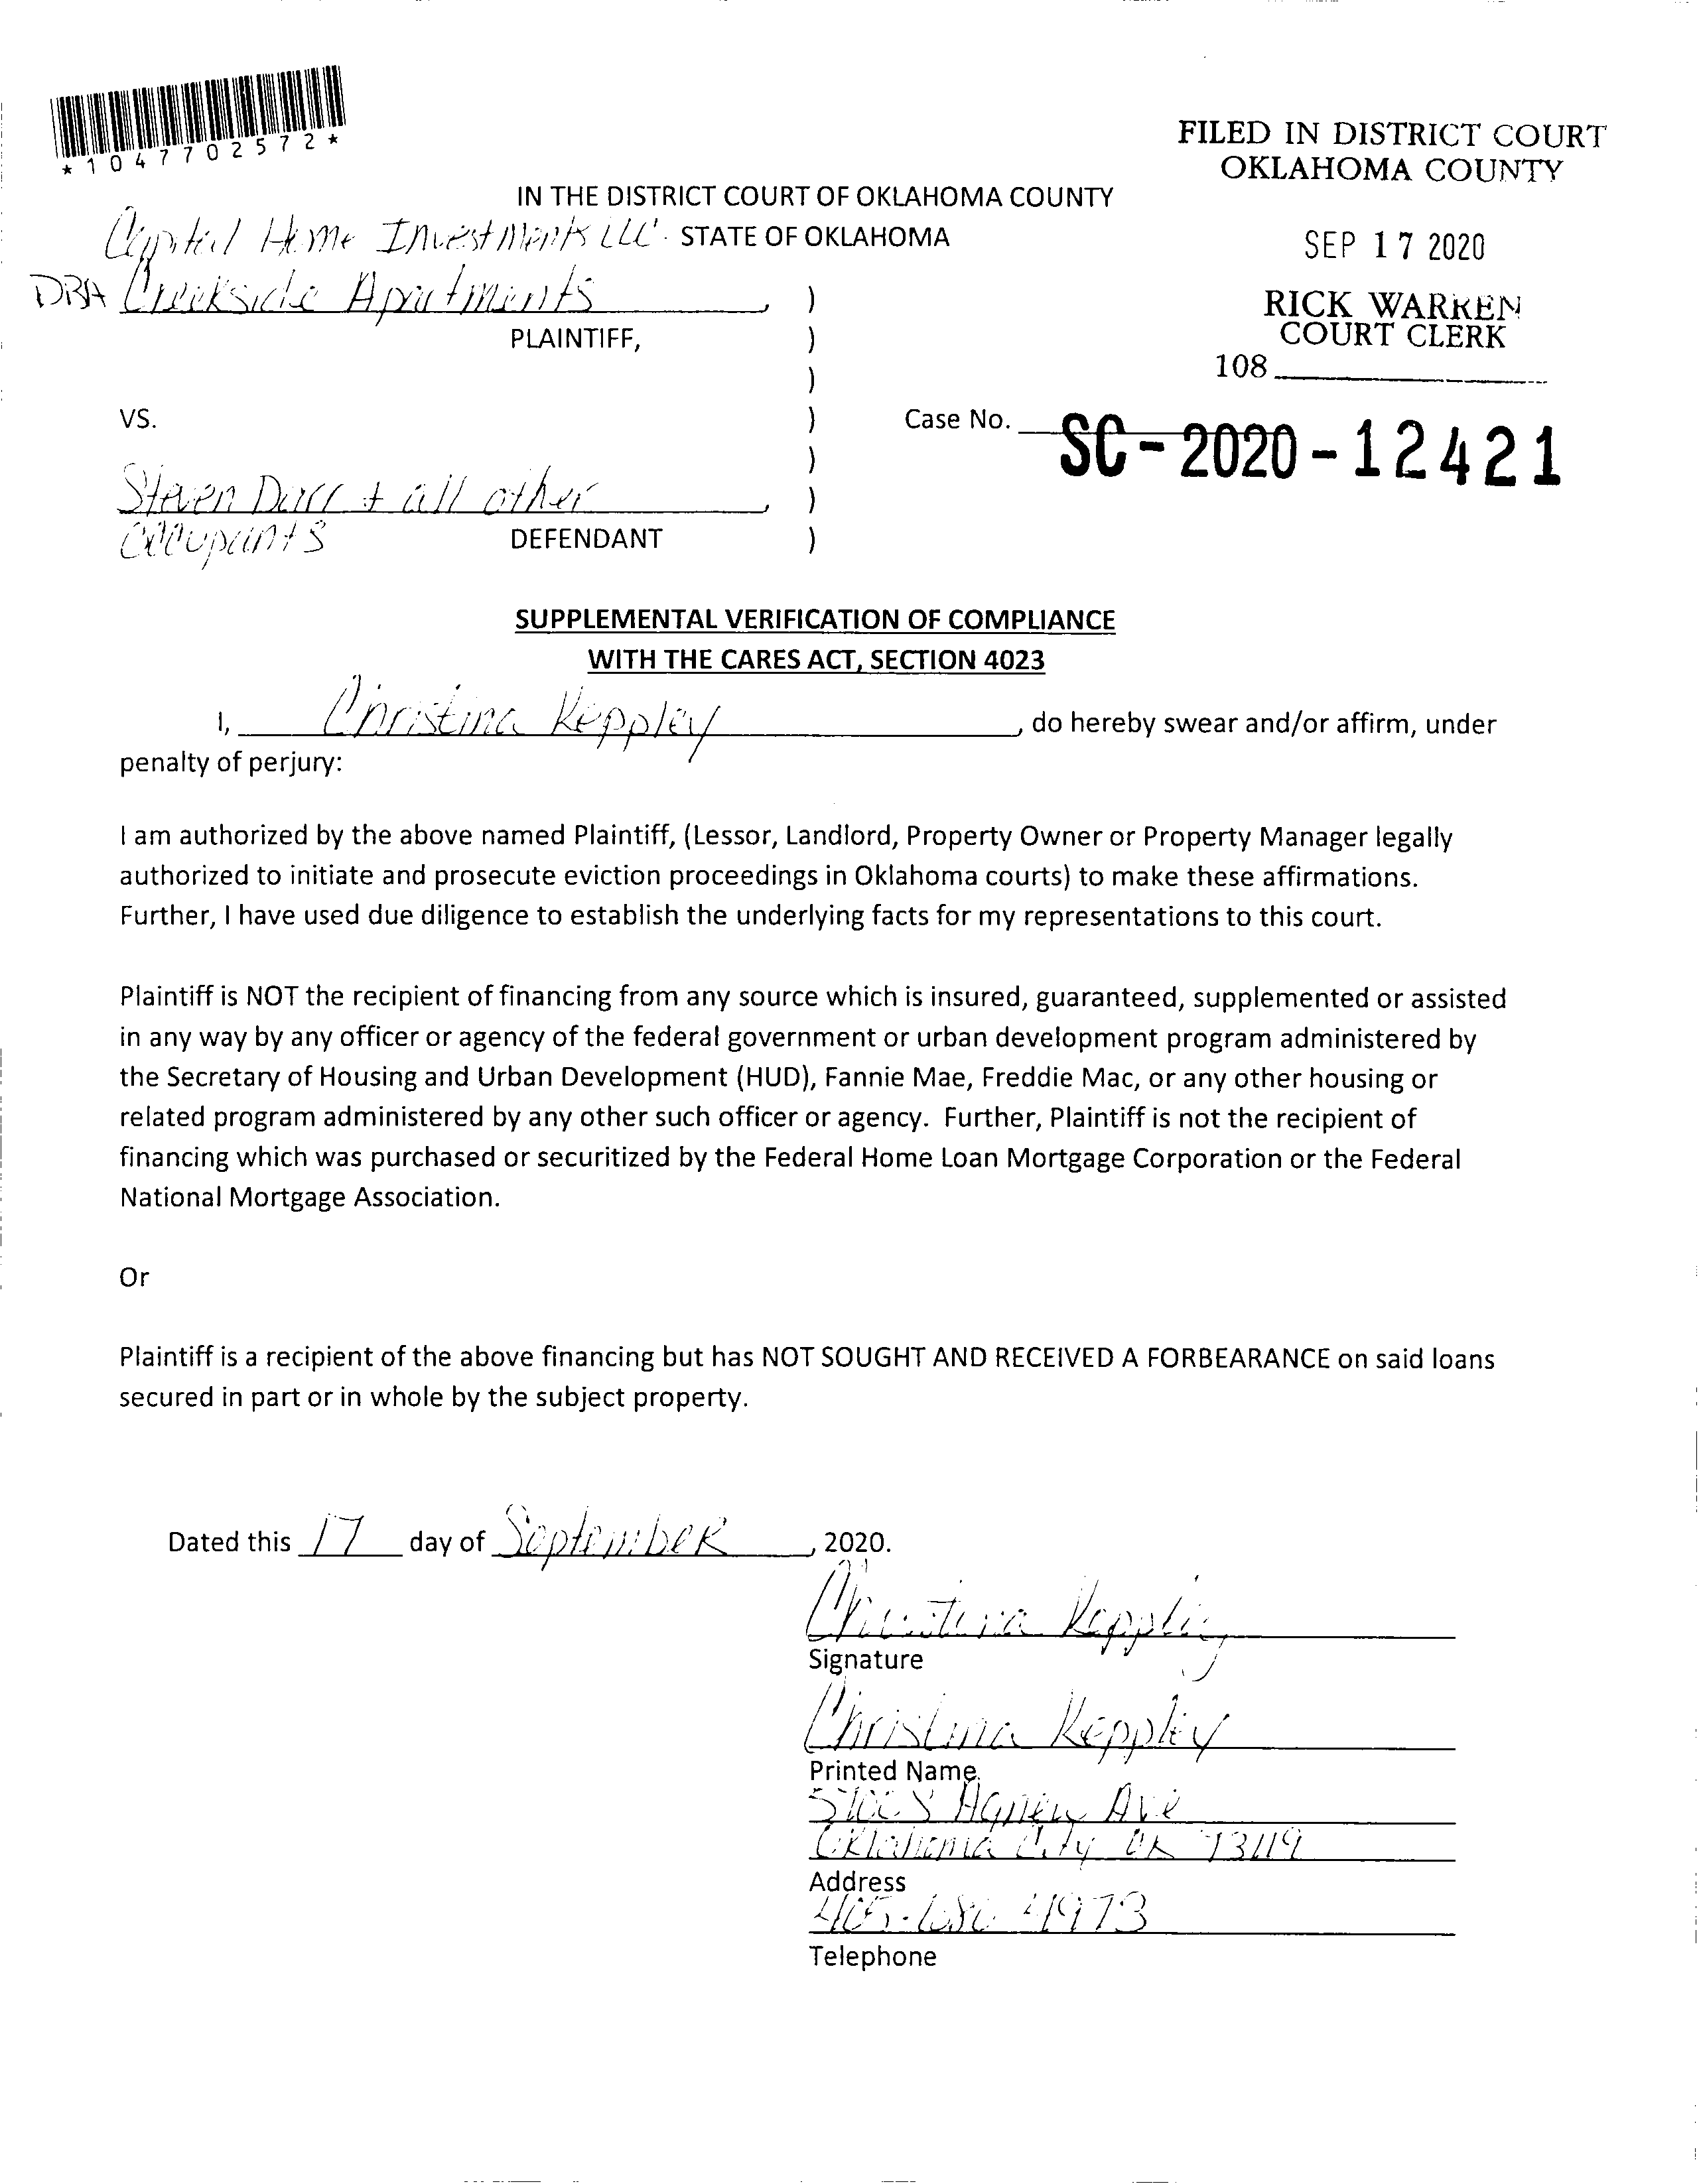 *1047702572*
FILED IN DISTRICT COURT
OKLAHOMA COUNTY
SEP 17 2020
RICK WARREN
COURT CLERK
108
IN THE DISTRICT COURT OF OKLAHOMA COUNTY
Capital Home Investments LLC. STATE OF OKLAHOMA
DBA Creekside Apartments, )
PLAINTIFF, )
)
VS. ) Case No. SC-2020-12421
)
Steven Durr + all other, )
occupants DEFENDANT )
SUPPLEMENTAL VERIFICATION OF COMPLIANCE
WITH THE CARES ACT, SECTION 4023
I, Christina Keppley, do hereby swear and/or affirm, under
penalty of perjury:
I am authorized by the above named Plaintiff, (Lessor, Landlord, Property Owner or Property Manager legally
authorized to initiate and prosecute eviction proceedings in Oklahoma courts) to make these affirmations.
Further, I have used due diligence to establish the underlying facts for my representations to this court.
Plaintiff is NOT the recipient of financing from any source which is insured, guaranteed, supplemented or assisted
in any way by any officer or agency of the federal government or urban development program administered by
the Secretary of Housing and Urban Development (HUD), Fannie Mae, Freddie Mac, or any other housing or
related program administered by any other such officer or agency. Further, Plaintiff is not the recipient of
financing which was purchased or securitized by the Federal Home Loan Mortgage Corporation or the Federal
National Mortgage Association.
Or
Plaintiff is a recipient of the above financing but has NOT SOUGHT AND RECEIVED A FORBEARANCE on said loans
secured in part or in whole by the subject property.
Dated this 17 day of September, 2020.
Christina Keppley
Signature
Christina Keppley
Printed Name
Agnew Ave
Oklahoma City OK 73119
Address
Telephone